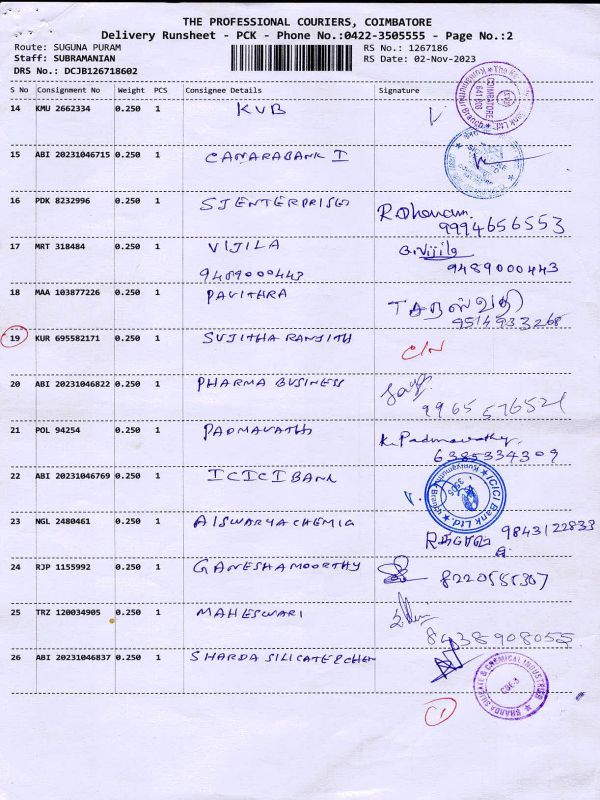 THE PROFESSIONAL COURIERS, COIMBATORE
Delivery Runsheet - PCK - Phone No.:0422-3505555 - Page No.:2
Route: SUGUNA PURAM RS No.: 1267186
Staff: SUBRAMANIAN RS Date: 02-Nov-2023
DRS No.: DCJB126718602
S No Consignment No Weight PCS Consignee Details Signature
14 KMU 2662334 0.250 1 KVB
15 ABI 20231046715 0.250 1 CANARABANK I
16 PDK 8232996 0.250 1 SJENTERPRISES
9994656553
17 MRT 318484 0.250 1 VIJILA G.Vijila
9489000443 9489000443
18 MAA 103877226 0.250 1 PAVITHRA
9514933268
19 KUR 695582171 0.250 1 SUJITHA RANJITH C/N
20 ABI 20231046822 0.250 1 PHARMA BUSINESS
9965576521
21 POL 94254 0.250 1 PADMAVATHI K. Padmavathy
6385334309
22 ABI 20231046769 0.250 1 ICICI BANK
ICICI Bank Ltd. Kuniyamuthur Branch
23 NGL 2480461 0.250 1 AISWARYA CHEMIC 9843122833
24 RJP 1155992 0.250 1 GANESHAMOORTHY 8220585307
25 TRZ 120034905 0.250 1 MAHESWARI
8438908055
26 ABI 20231046837 0.250 1 SHARDA SILICATE & CHEM
SHARDA SILICATE & CHEMICAL INDUSTRIES
CBE-8